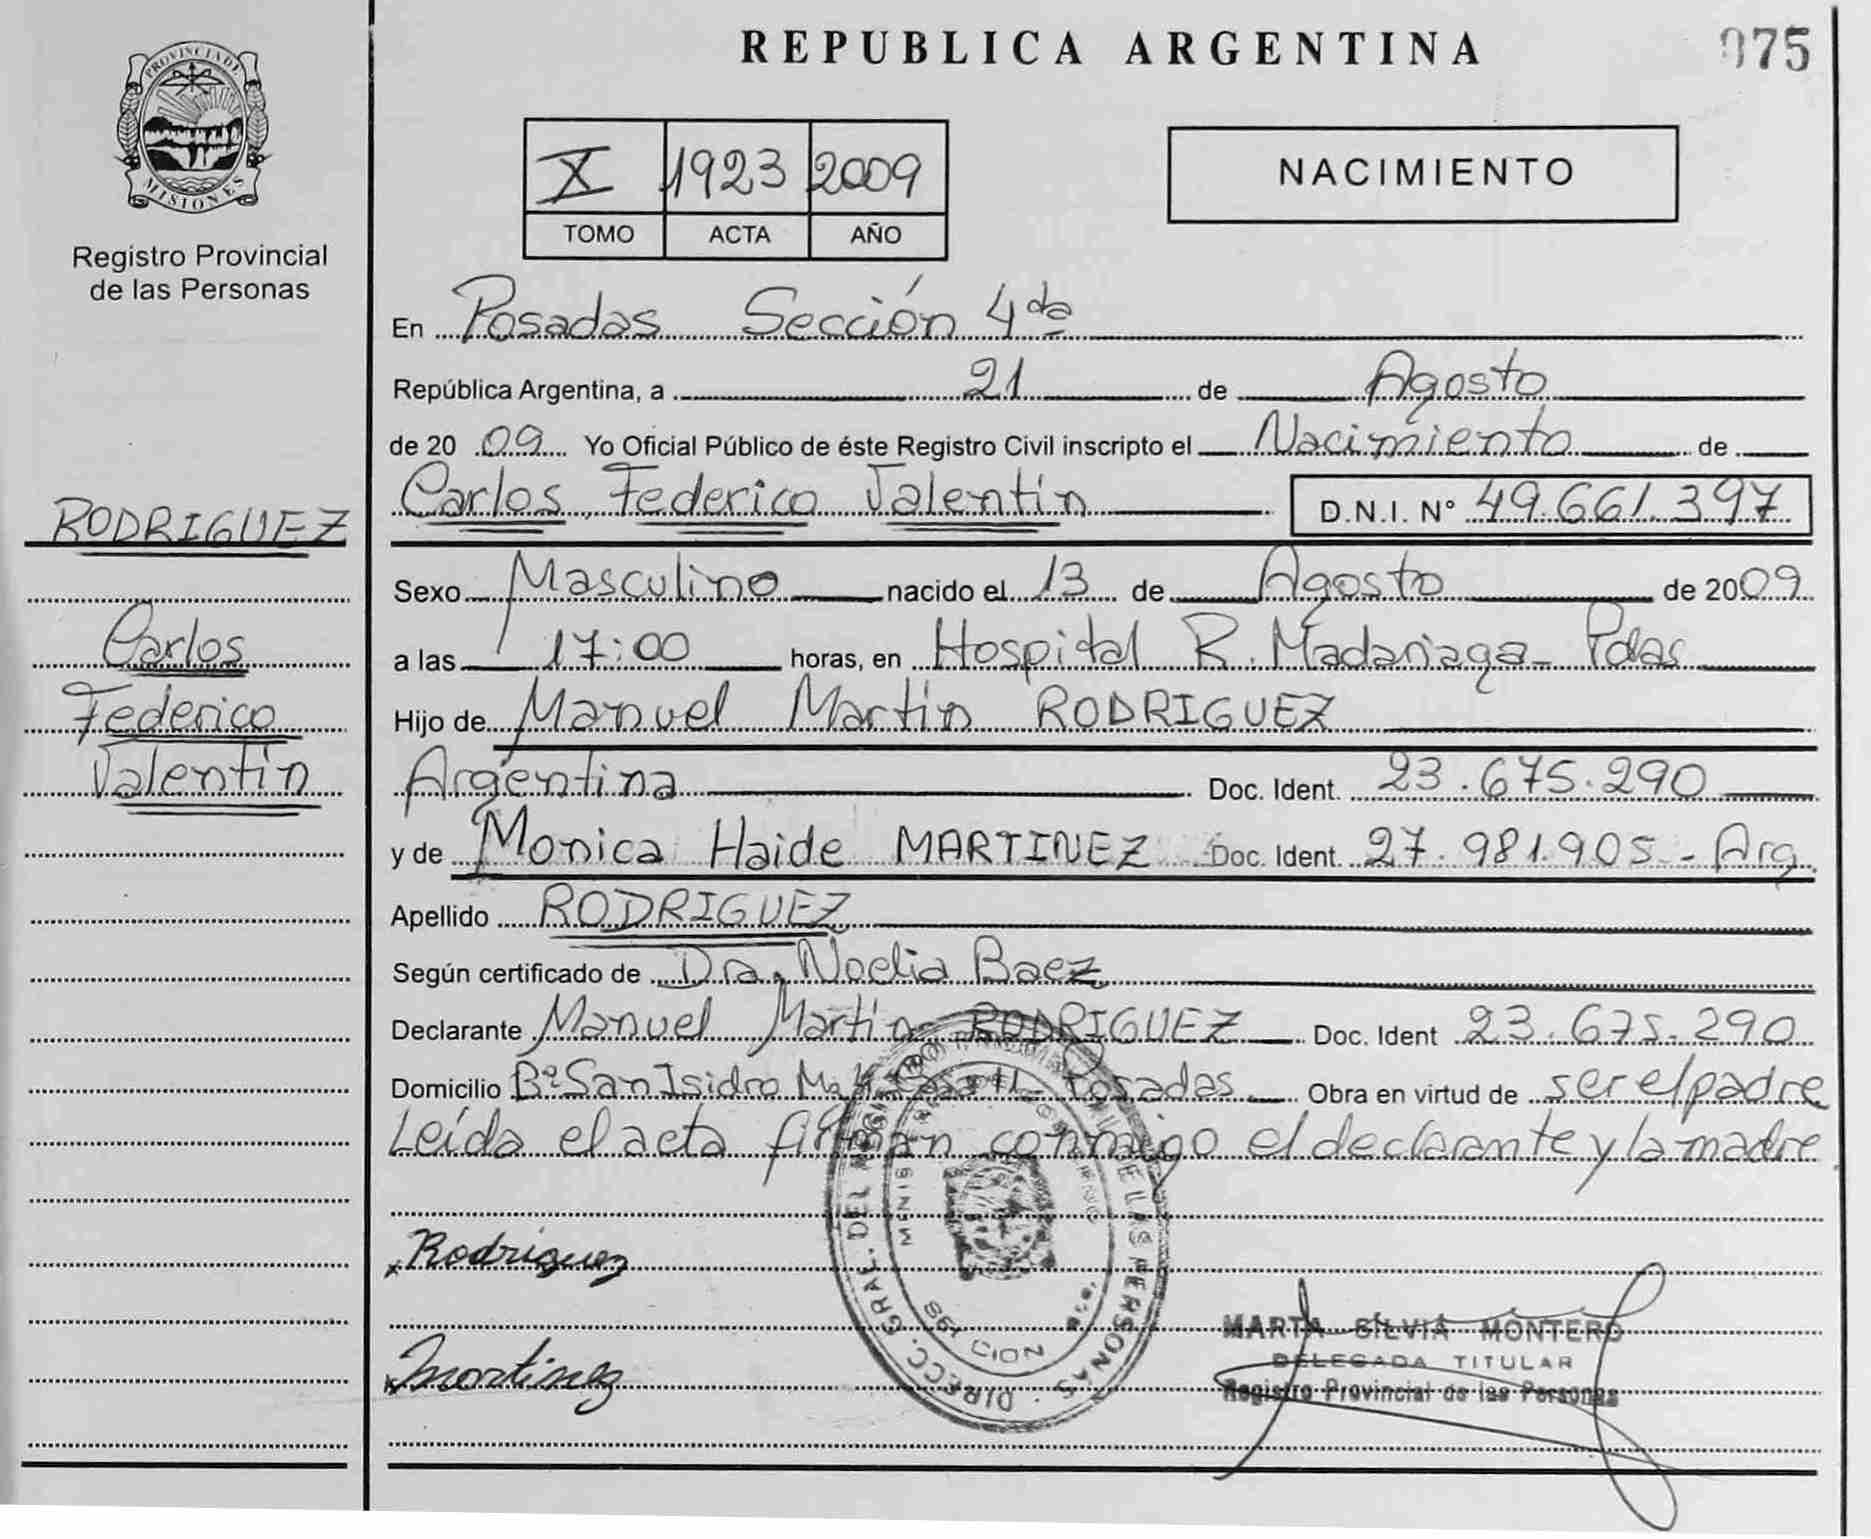 REPUBLICA ARGENTINA
075
PROVINCIA DE
MISIONES
Registro Provincial
de las Personas
X 1923 2009
TOMO ACTA AÑO
NACIMIENTO
En Posadas Sección 4da
República Argentina, a 21 de Agosto
de 2009 Yo Oficial Público de éste Registro Civil inscripto el Nacimiento de
Carlos Federico Valentín D.N.I. N° 49.661.397
RODRIGUEZ
Carlos
Federico
Valentín
Sexo Masculino nacido el 13 de Agosto de 2009
a las 17:00 horas, en Hospital R. Madariaga - Pdas
Hijo de Manuel Martín RODRIGUEZ
Argentina Doc. Ident. 23.675.290
y de Monica Haide MARTINEZ Doc. Ident. 27.981.905 - Arg.
Apellido RODRIGUEZ
Según certificado de Dra. Noelia Baez
Declarante Manuel Martín RODRIGUEZ Doc. Ident 23.675.290
Domicilio B° San Isidro Posadas Obra en virtud de ser el padre
Leída el acta firman conmigo el declarante y la madre
x Rodriguez
x Martinez
DIRECC. GRAL. DEL REGISTRO DE LAS PERSONAS
MARTA SILVIA MONTERO
DELEGADA TITULAR
Registro Provincial de las Personas